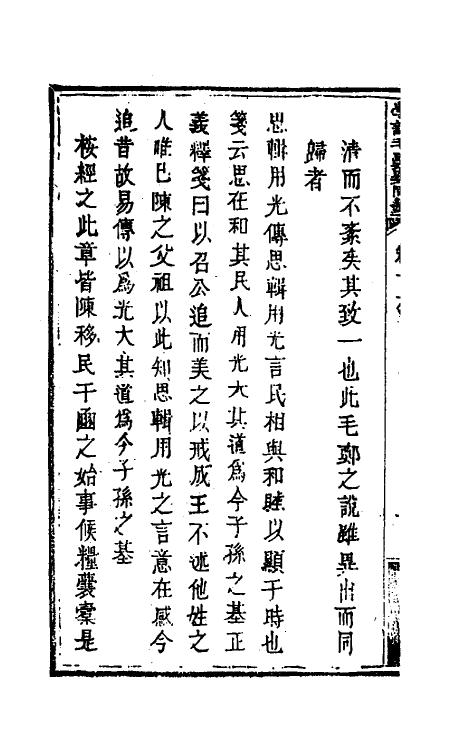 淆而不紊矣其致一也此毛鄭之說雖異出而同
歸者
思輯用光傳思輯用光言民相與和睦以顯于時也
箋云思在和其民人用光大其道為今子孫之基正
義釋箋曰以召公追而美之以戒成王不述他姓之
人唯已陳之父祖以此知思輯用光之言意在感今
追昔故易傳以為光大其道為今子孫之基
桉經之此章皆陳移民于豳之始事候糧囊橐是